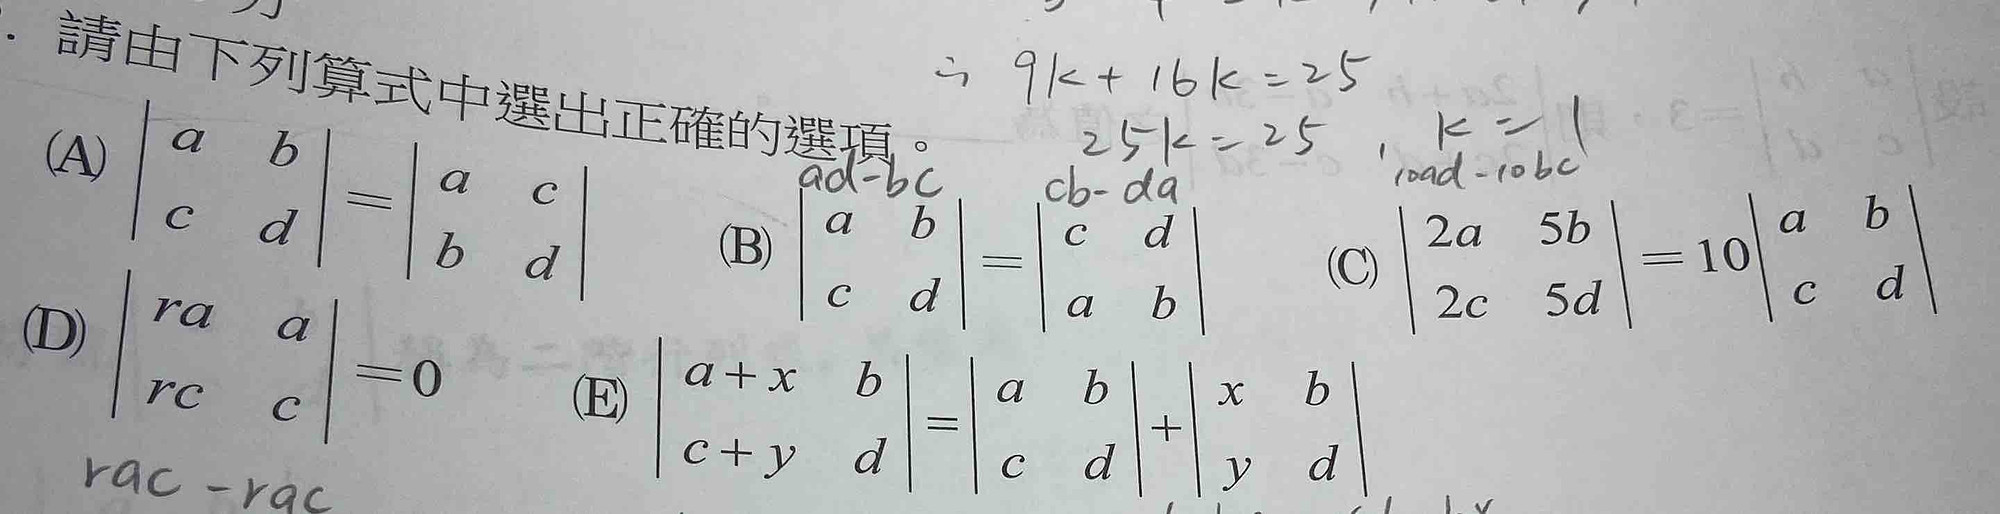 請由下列算式中選出正確的選項。
∴ 9k+16k=25
25k=25 , k=1
(A) | a b ; c d | = | a c ; b d |
ad-bc
cb-da
(B) | a b ; c d | = | c d ; a b |
10ad-10bc
(C) | 2a 5b ; 2c 5d | = 10 | a b ; c d |
(D) | ra a ; rc c | = 0
rac-rac
(E) | a+x b ; c+y d | = | a b ; c d | + | x b ; y d |